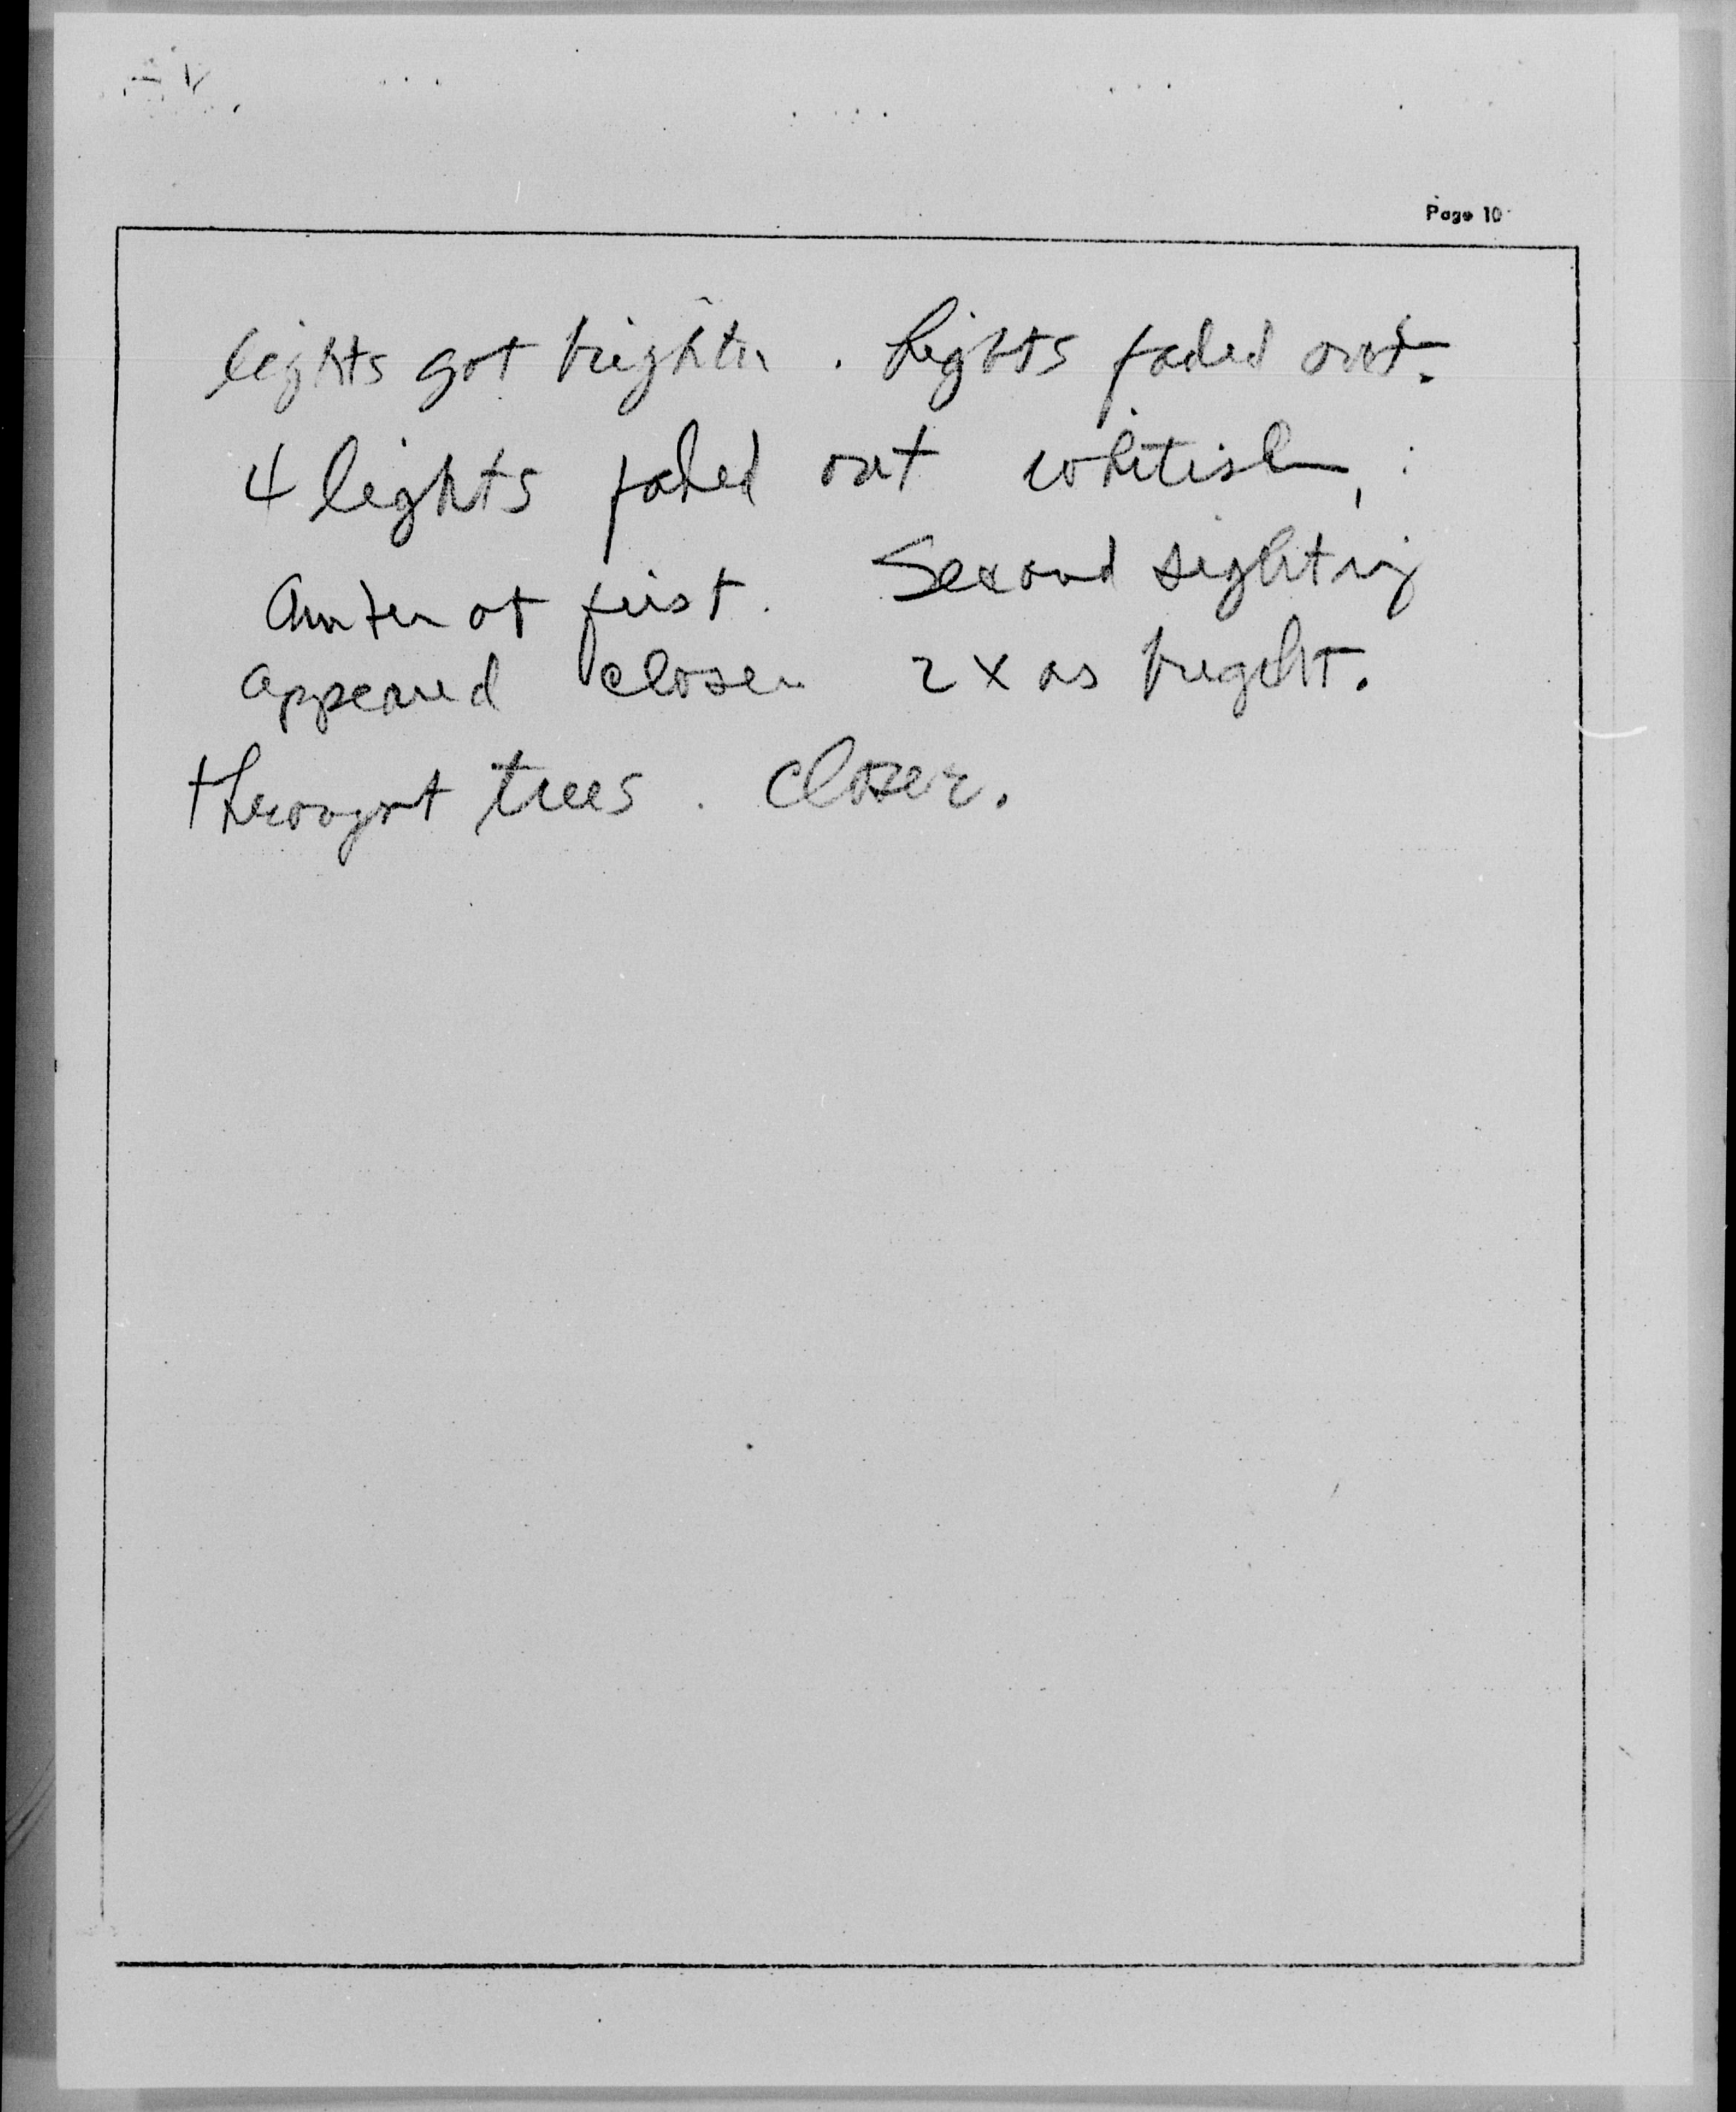 Page 10
lights got brighter. Lights faded out.
4 lights faded out whitish,
Amber at first. Second sighting
appeared closer 2 x as bright.
through trees. closer.